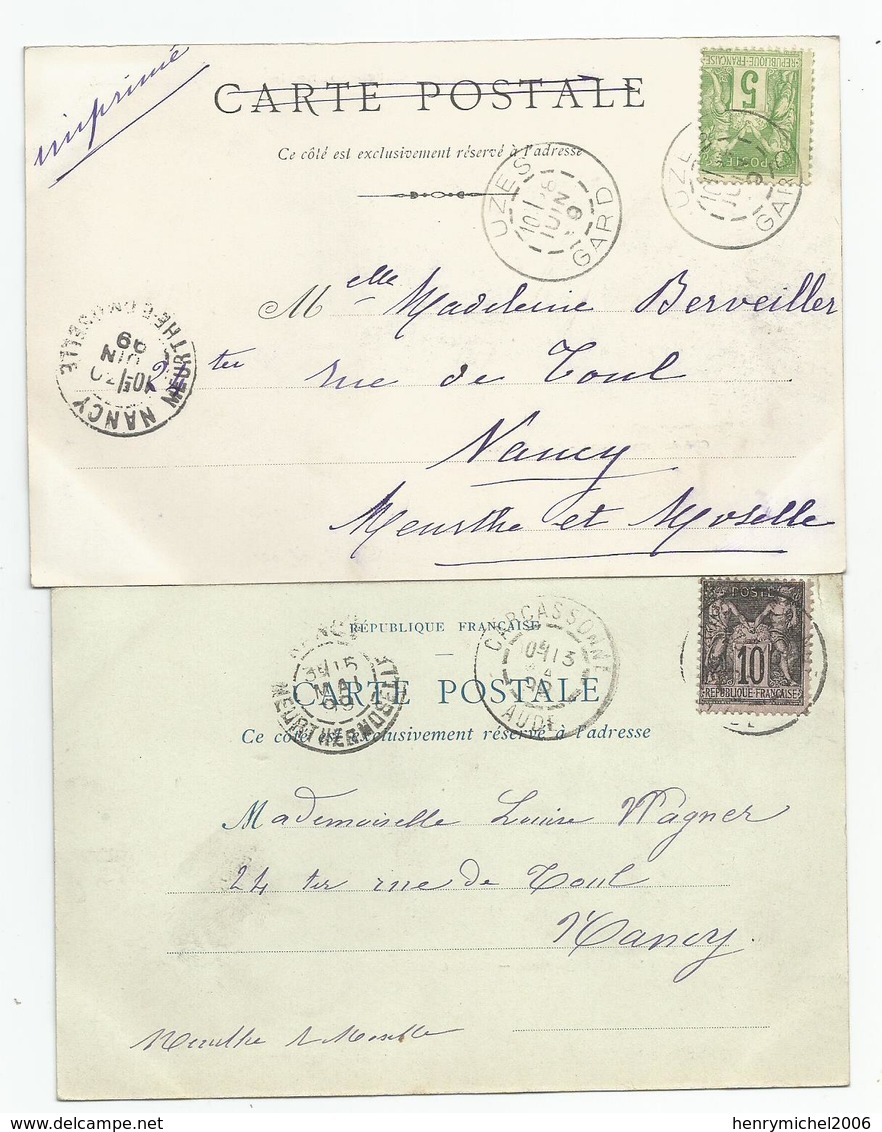 imprimé
CARTE POSTALE
Ce côté est exclusivement réservé à l'adresse
RÉPUBLIQUE FRANÇAISE
5
POSTES
UZES
GARD
UZES
GARD
Melle Madeleine Berveiller
ter rue de Toul
Nancy
Meurthe et Moselle
NANCY
MEURTHE-ET-MOSELLE
JUIN
99
RÉPUBLIQUE FRANÇAISE
CARTE POSTALE
Ce côté est exclusivement réservé à l'adresse
POSTE
10
REPUBLIQUE FRANÇAISE
CARCASSONNE
AUDE
Mademoiselle Louise Wagner
24 ter rue de Toul
Nancy
Meurthe & Moselle
henrymichel2006